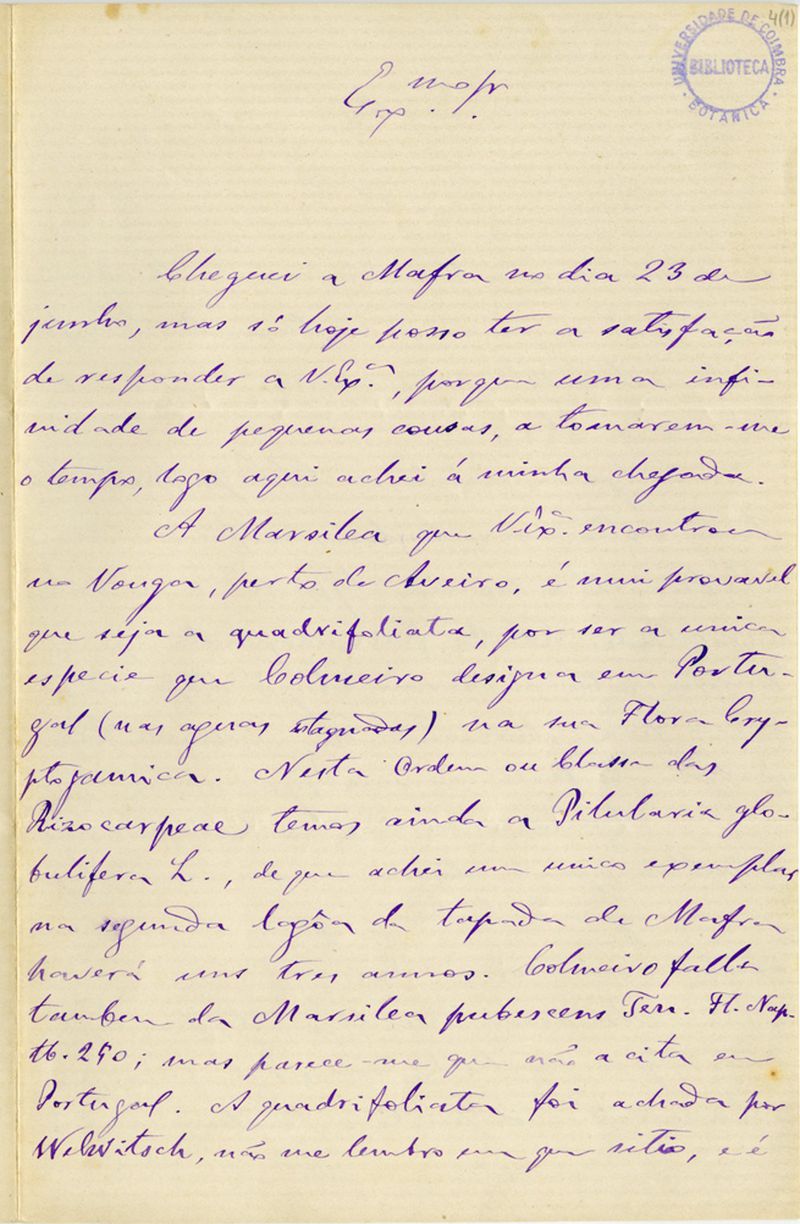 4(1)
UNIVERSIDADE DE COIMBRA
BIBLIOTECA
BOTANICA
Exmo Sr.
Cheguei a Mafra no dia 23 de
junho, mas só hoje posso ter a satisfação
de responder a V. Exª., porque uma infi-
nidade de pequenas cousas, a tomarem-me
o tempo, logo aqui achei á minha chegada.
A Marsilea que V. Exª. encontrou
no Vouga, perto de Aveiro, é mui provavel
que seja a quadrifoliata, por ser a unica
especie que Colmeiro designa em Portu-
gal (nas aguas stagnadas) na sua Flora Cry-
ptogamica. Nesta Ordem ou Classe das
Rizocarpeae temos ainda a Pilularia glo-
bulifera L., de que achei um unico exemplar
na segunda lagôa da tapada de Mafra
haverá uns tres annos. Colmeiro falla
tambem da Marsilea pubescens Ten. Fl. Nap.
tb. 250; mas parece-me que não a cita em
Portugal. A quadrifoliata foi achada por
Welwitsch, não me lembro em que sitio, e é